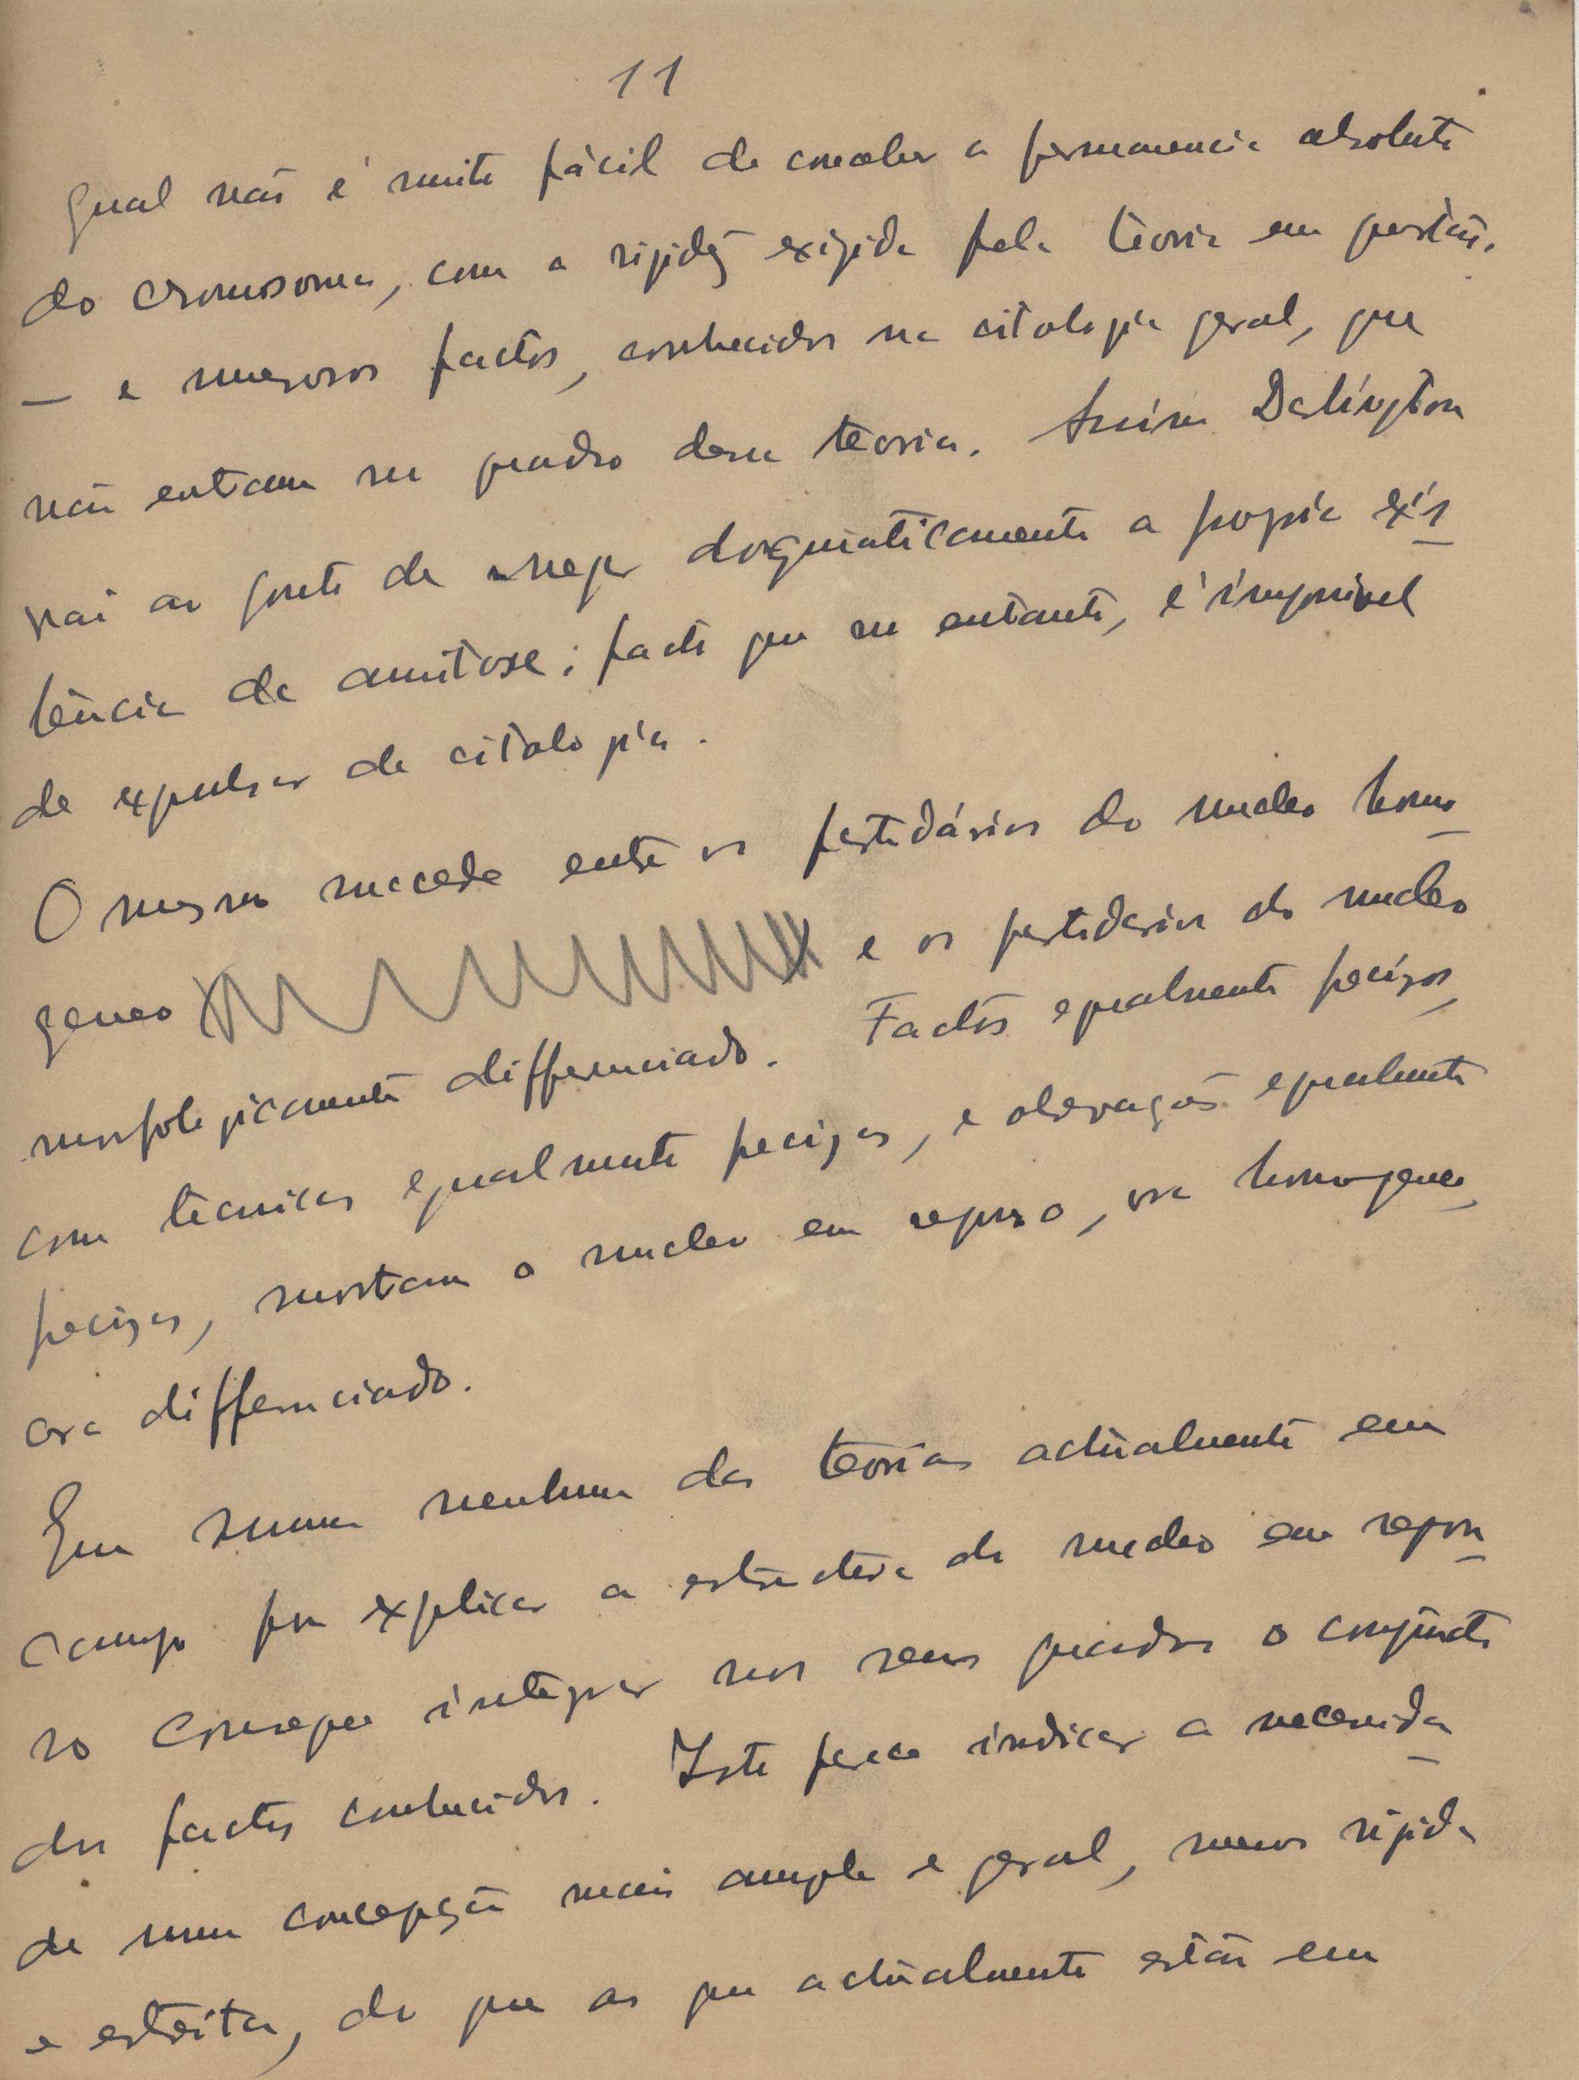 11
qual não é muito fácil de conceber a permanencia absoluta
do cromosoma, com a rigidez exigida pela teoria em questão,
— e numerosos factos, conhecidos na citologia geral, que
não entram no quadro dessa teoria. Assim Darlington
vai ao ponto de negar dogmaticamente a propria exis
tência da amitose; facto que no entanto, é impossivel
de expulsar da citologia.
O mesmo succede entre os partidários do nucleo homo
geneo e os partidarios do nucleo
morfologicamente differenciado. Factos egualmente precizos,
com tecnicas egualmente precizas, e observações egualmente
precizas, mostram o nucleo em repouso, ora homogeneo,
ora differenciado.
Em suma nenhuma das teorias actualmente em
campo para explicar a estructura do nucleo em repou
so consegue integrar nos seus quadros o conjuncto
dos factos conhecidos. Isto parece indicar a necessida
de numa concepção mais ampla e geral, menos rigida
e estreita, do que as que actualmente estão em